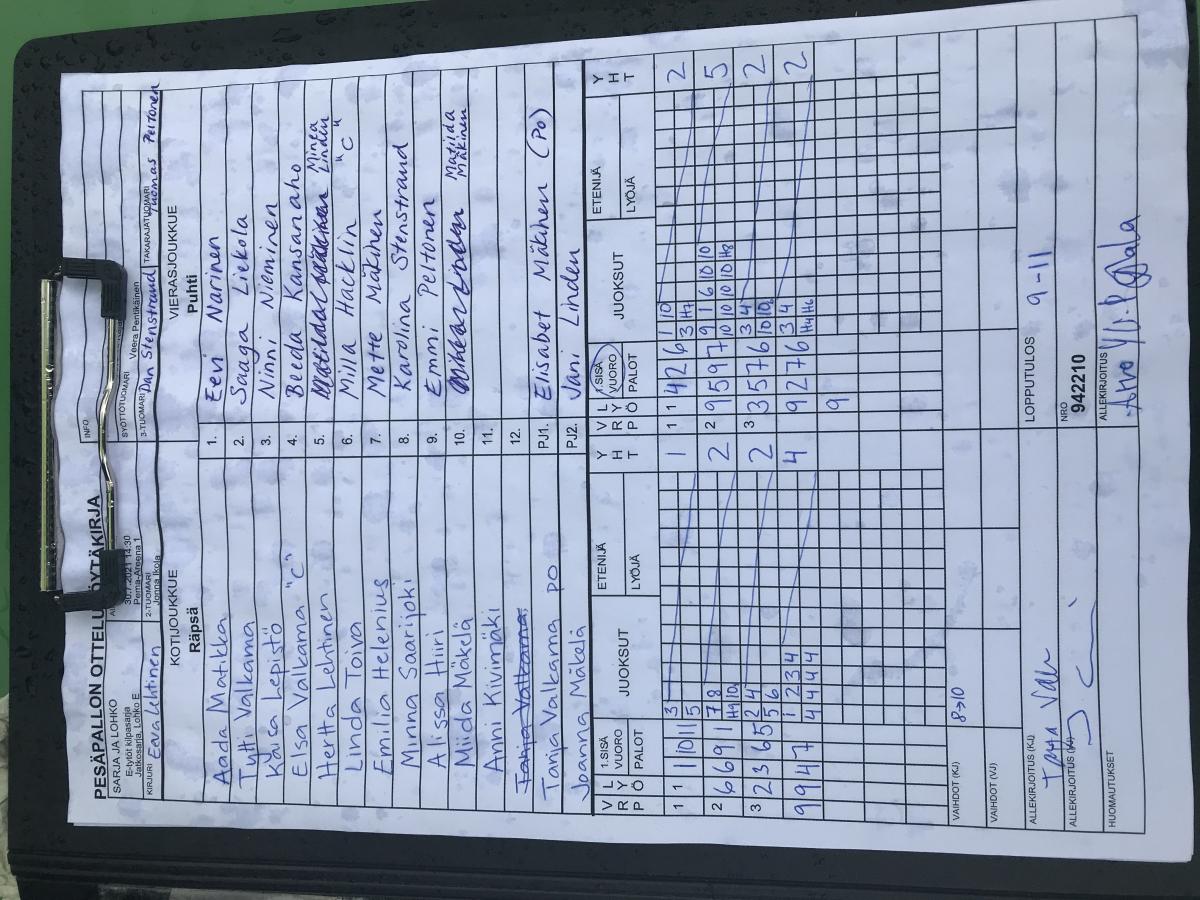 PESÄPALLON OTTELUPÖYTÄKIRJA
INFO
SARJA JA LOHKO
E-tytöt kilpasarja
Jatkosarja, Lohko E
30.7.2021 14:30
Pema-Areena 1
SYÖTTÖTUOMARI Veera Pentikäinen
KIRJURI Eeva Lehtinen
2-TUOMARI Jonna Ikola
3-TUOMARI Dan Stenstrand
TAKARAJATUOMARI Tuomas Peltonen
KOTIJOUKKUE
Räpsä
VIERASJOUKKUE
Puhti
Aada Matikka 1. Eevi Narinen
Tytti Valkama 2. Saaga Liekola
Kaisa Lepistö 3. Ninni Nieminen
Elsa Valkama "C" 4. Beeda Kansanaho
Hertta Lehtinen 5. Minea Linden
Linda Toiva 6. Milla Hacklin "C"
Emilia Helenius 7. Mette Mäkinen
Minna Saarijoki 8. Karolina Stenstrand
Alissa Hiiri 9. Emmi Peltonen
Miida Mäkelä 10. Matilda Mäkinen
Anni Kivinmäki 11.
Tanja Valkama 12.
Tanja Valkama PO PJ1. Elisabet Mäkinen (PO)
Joanna Mäkelä PJ2. Jani Linden
V R L Y Ö 1.SISÄ VUORO PALOT JUOKSUT ETENIJÄ LYÖJÄ Y H T V R L Y Ö 1.SISÄ VUORO PALOT JUOKSUT ETENIJÄ LYÖJÄ Y H T
1 1 1 10 11 3 1 1 1 4 2 6 1 10 2
5 3 H7
2 6 6 9 1 7 8 2 2 9 5 9 7 9 1 6 10 10 5
H9 10 10 10 10 10 H8
3 2 3 6 5 2 4 2 3 3 5 7 6 3 4 2
5 6 10 10
9 9 4 7 1 2 3 4 4 9 2 7 6 3 4 2
4 4 4 4 H4 H6
9
VAIHDOT (KJ) 8→10
VAIHDOT (VJ)
ALLEKIRJOITUS (KJ)
LOPPUTULOS 9-11
ALLEKIRJOITUS (VJ)
NRO
942210
HUOMAUTUKSET
ALLEKIRJOITUS